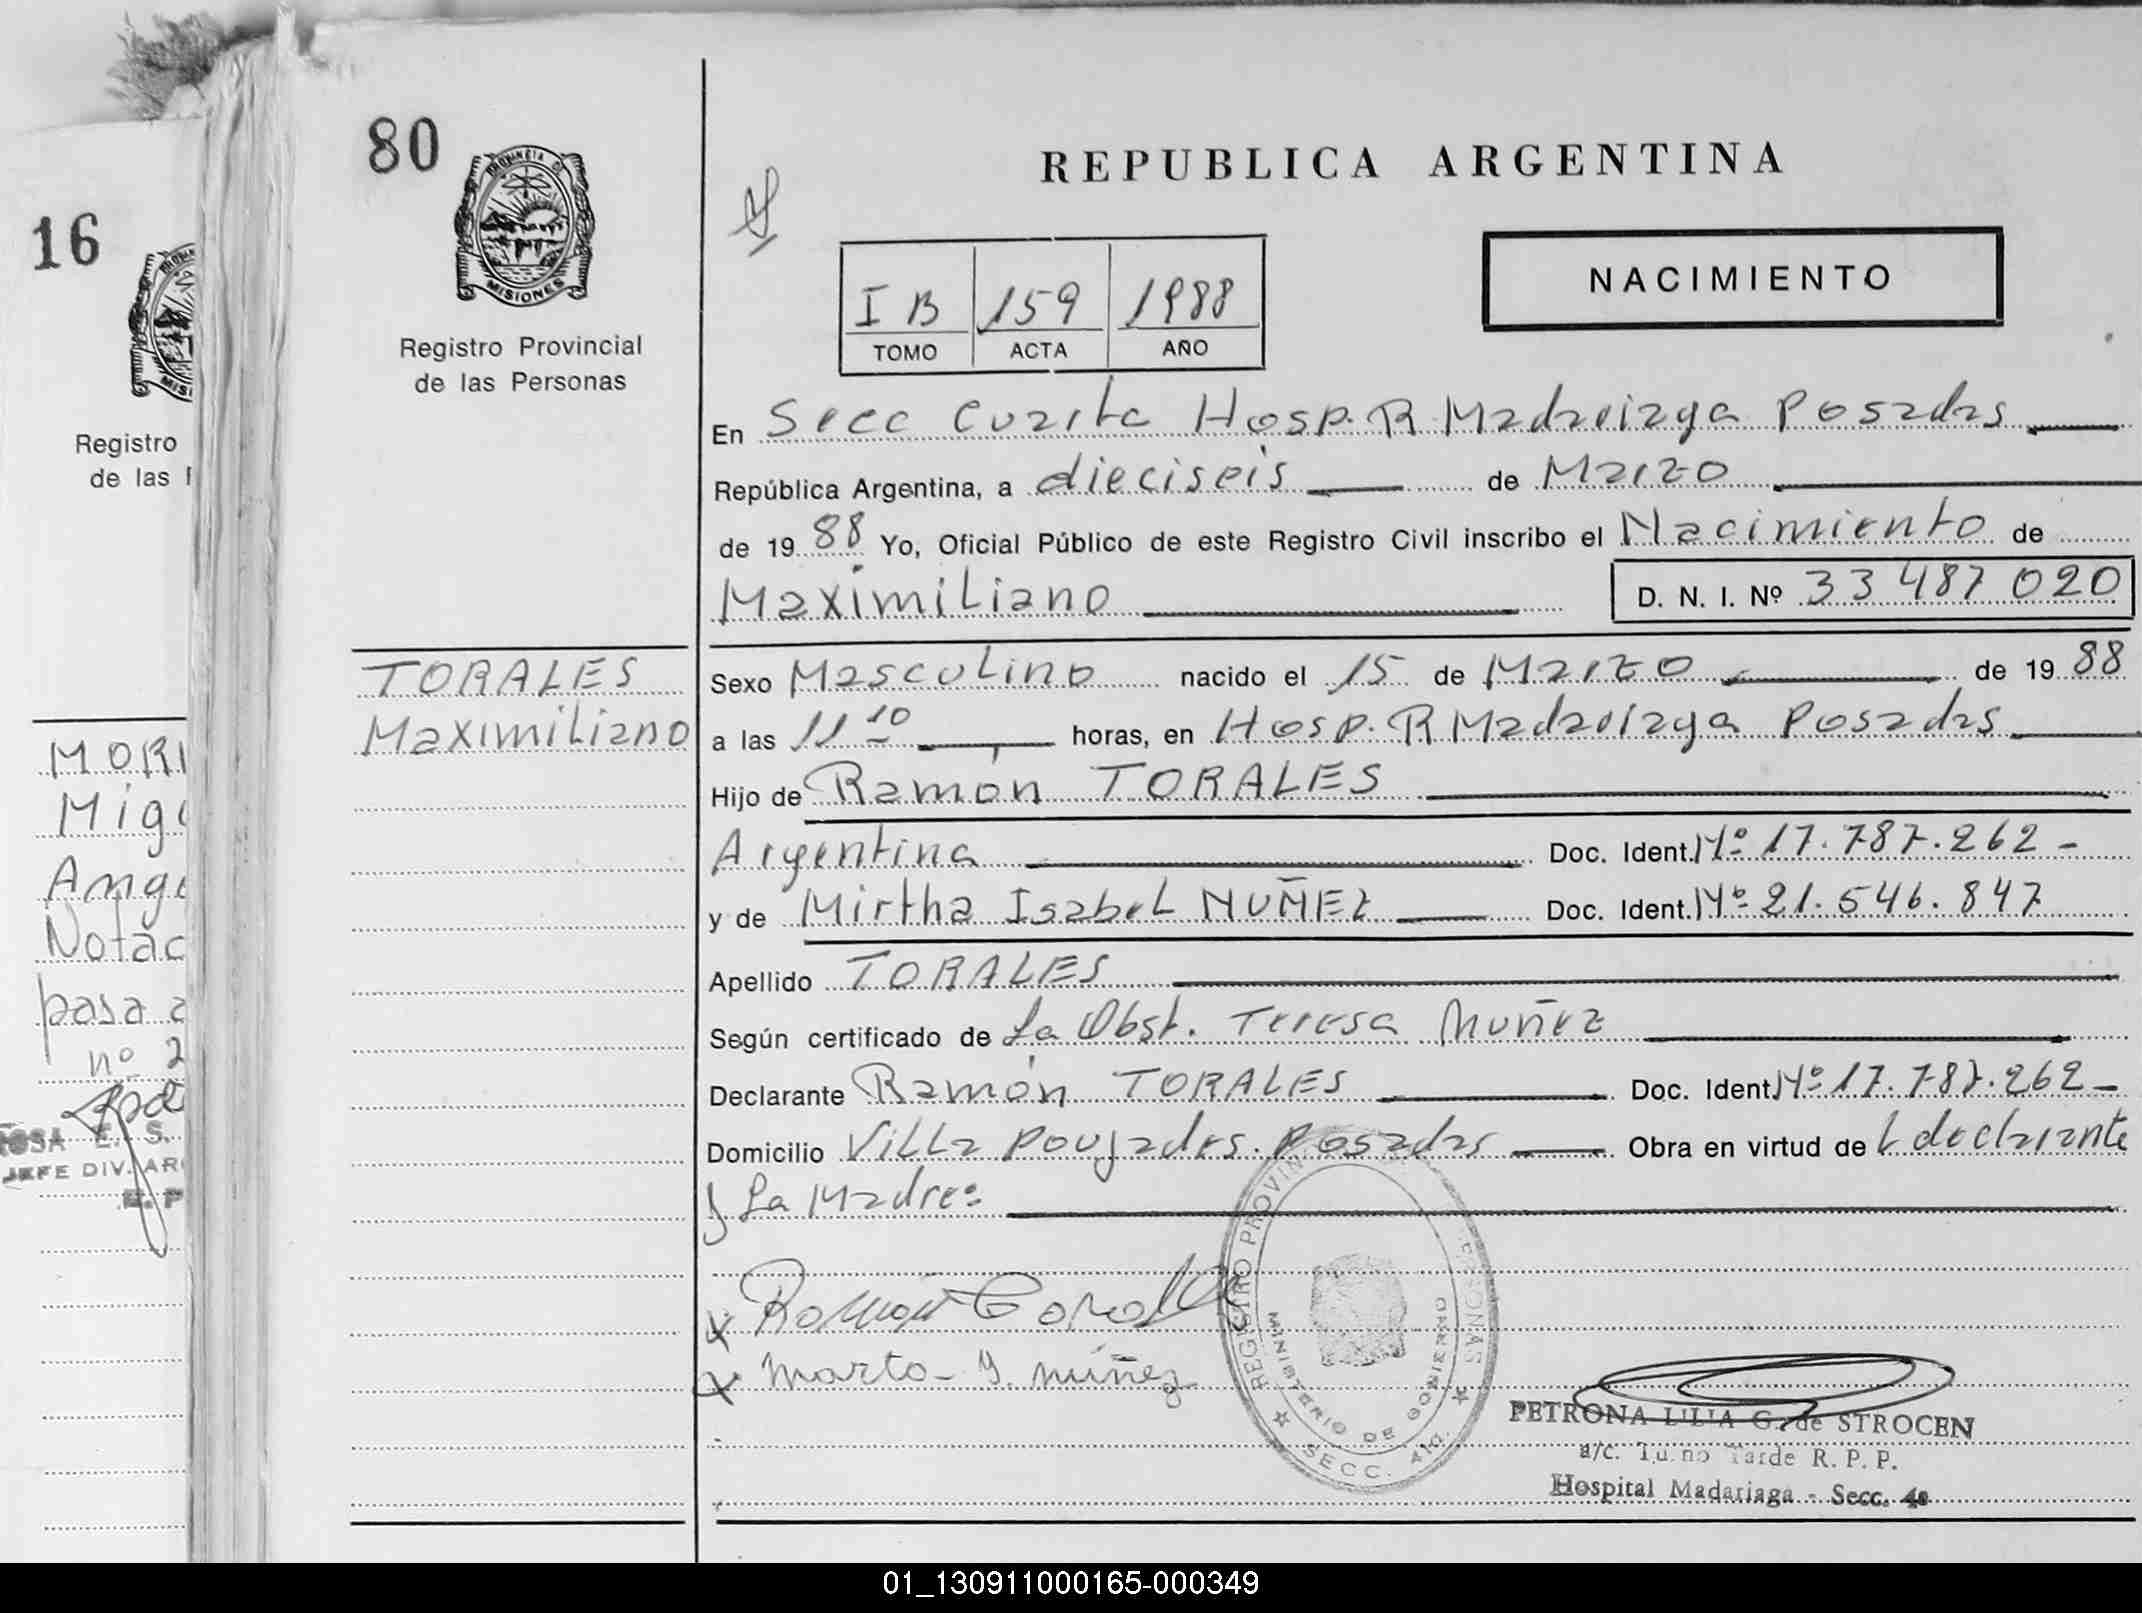 16
Registro
de las
MORI
Migu
Ange
Notac
pasa a
nº 2
ROSA E. S.
JEFE DIV. AR
80
PROVINCIA DE
MISIONES
Registro Provincial
de las Personas
TORALES
Maximiliano
REPUBLICA ARGENTINA
NACIMIENTO
I B 159 1988
TOMO ACTA AÑO
En Secc Cuarta Hosp. R Madariaga Posadas
República Argentina, a dieciseis de Marzo
de 1988 Yo, Oficial Público de este Registro Civil inscribo el Nacimiento de
Maximiliano D. N. I. Nº 33 487 020
Sexo Masculino nacido el 15 de Marzo de 1988
a las 11 10 horas, en Hosp. R Madariaga Posadas
Hijo de Ramón TORALES
Argentina Doc. Ident. Nº 17.787.262-
y de Mirtha Isabel NUÑEZ Doc. Ident. Nº 21.546.847
Apellido TORALES
Según certificado de La Obst. Teresa Nuñez
Declarante Ramón TORALES Doc. Ident. Nº 17.787.262-
Domicilio Villa Poujades. Posadas Obra en virtud de L declarante
y La Madre
REGISTRO PROVINCIAL PERSONAS
MINISTERIO DE GOBIERNO
SECC. 4ta.
x Ramon Torales
x Marta Y. nuñez
PETRONA LILIA G. de STROCEN
a/c. Turno Tarde R. P. P.
Hospital Madariaga - Secc. 4a
01_130911000165-000349